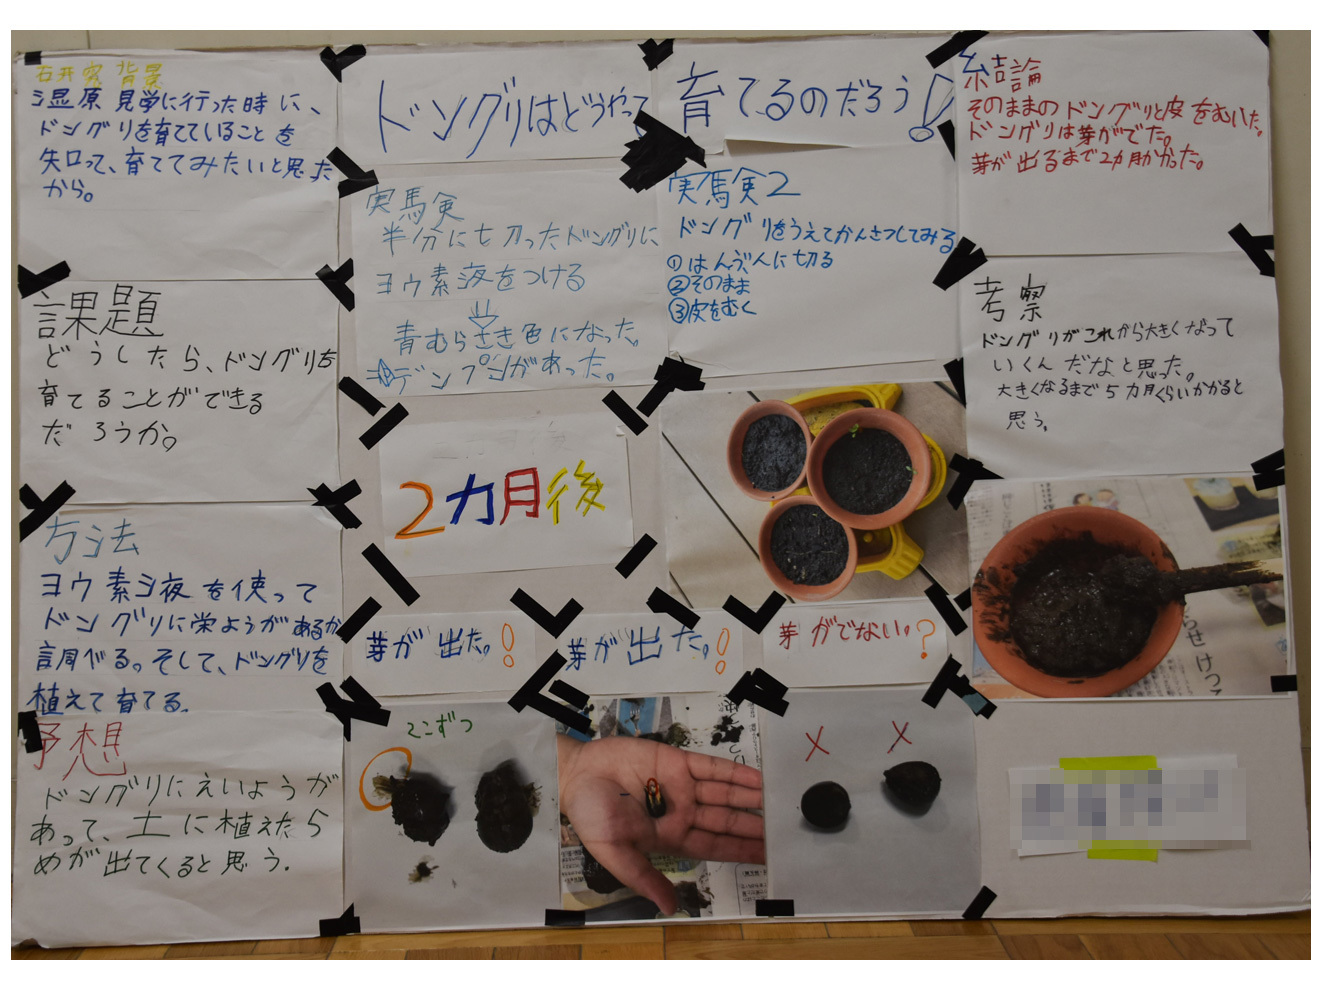 ドングリはどうやって育てるのだろう!
石井究背景
湿原見学に行った時に、
ドングリを育てていることを
知って、育ててみたいと思った
から。
課題
どうしたら、ドングリを
育てることができる
だろうか。
方法
ヨウ素液を使って
ドングリに栄ようがあるか
調べる。そして、ドングリを
植えて育てる。
予想
ドングリにえいようが
あって、土に植えたら
めが出てくると思う。
実験
半分に切ったドングリに
ヨウ素液をつける
⇩
青むらさき色になった。
デンプンがあった。
実験2
ドングリをうえてかんさつしてみる
①はんぶんに切る
②そのまま
③皮をむく
2カ月後
芽が出た。!
芽が出た。!
芽がでない。?
2こずつ
X X
結論
そのままのドングリと皮をむいた。
ドングリは芽がでた。
芽が出るまで2カ月かかった。
考察
ドングリがこれから大きくなって
いくんだなと思った。
大きくなるまで5カ月くらいかかると
思う。